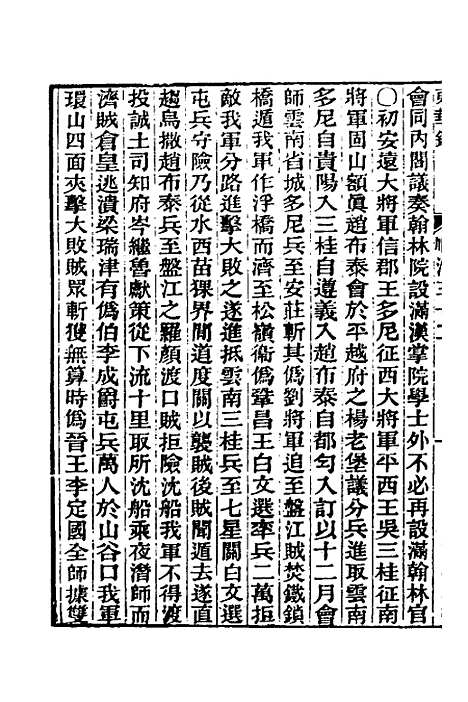 會同內閣議奏翰林院設滿漢掌院學士外不必再設滿翰林官
〇初安遠大將軍信郡王多尼征西大將軍平西王吳三桂征南
將軍固山額眞趙布泰會於平越府之楊老堡議分兵進取雲南
多尼自貴陽入三桂自遵義入趙布泰自都勻入訂以十二月會
師雲南省城多尼兵至安莊斬其僞劉將軍追至盤江賊焚鐵鎖
橋遁我軍作浮橋而濟至松嶺衞僞鞏昌王白文選率兵二萬拒
敵我軍分路進擊大敗之遂進抵雲南三桂兵至七星關白文選
屯兵守險乃從水西苗猓界閒道度關以襲賊後賊聞遁去遂直
趨烏撒趙布泰兵至盤江之羅顏渡口賊拒險沈船我軍不得渡
投誠土司知府岑繼魯獻策從下流十里取所沈船乘夜潛師而
濟賊倉皇逃潰梁瑞津有僞伯李成爵屯兵萬人於山谷口我軍
環山四面夾擊大敗賊眾斬獲無算時僞晉王李定國全師據雙